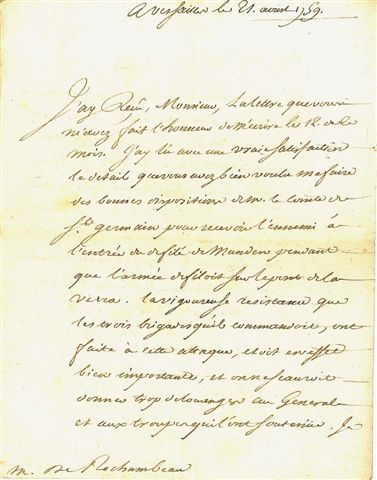 a versailles le 21. aoust 1759.
J'ay Reçu, Monsieur, La lettre que vous
m'avez fait l'honneur de m'ecrire le 12. de ce
mois. J'ay lû avec une vraie satisfaction
le detail que vous avez bien voulu me faire
des bonnes dispositions de m. le comte de
St. germain pour recevoir l'ennemi à
l'entrée du defilé de Munden pendant
que l'armée defiloit sur le pont de la
verra. la vigoureuse resistance que
les trois brigades qu'il commandoit, ont
faite à cette attaque, etoit en effet
bien importante, et on ne scauroit
donner trop de louanges au General
et aux troupes qui l'ont soutenüe. Je
m. de Rochambeau